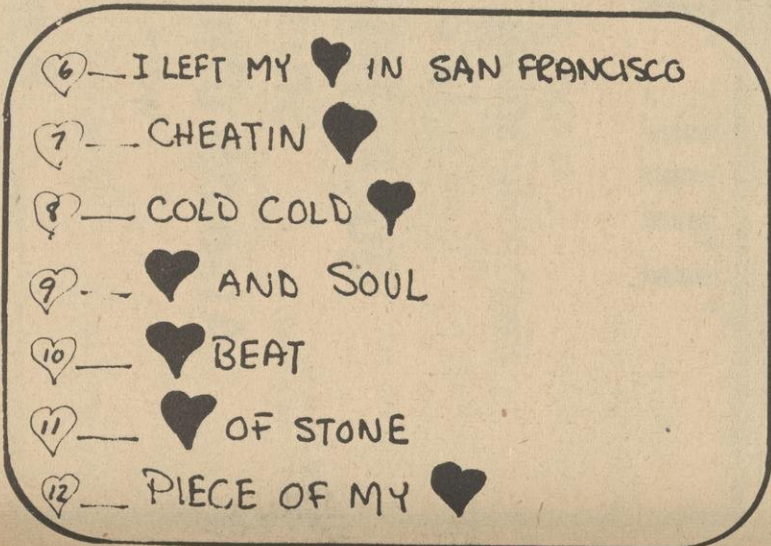 6 I LEFT MY ♥ IN SAN FRANCISCO
7 CHEATIN ♥
8 COLD COLD ♥
9 ♥ AND SOUL
10 ♥ BEAT
11 ♥ OF STONE
12 PIECE OF MY ♥